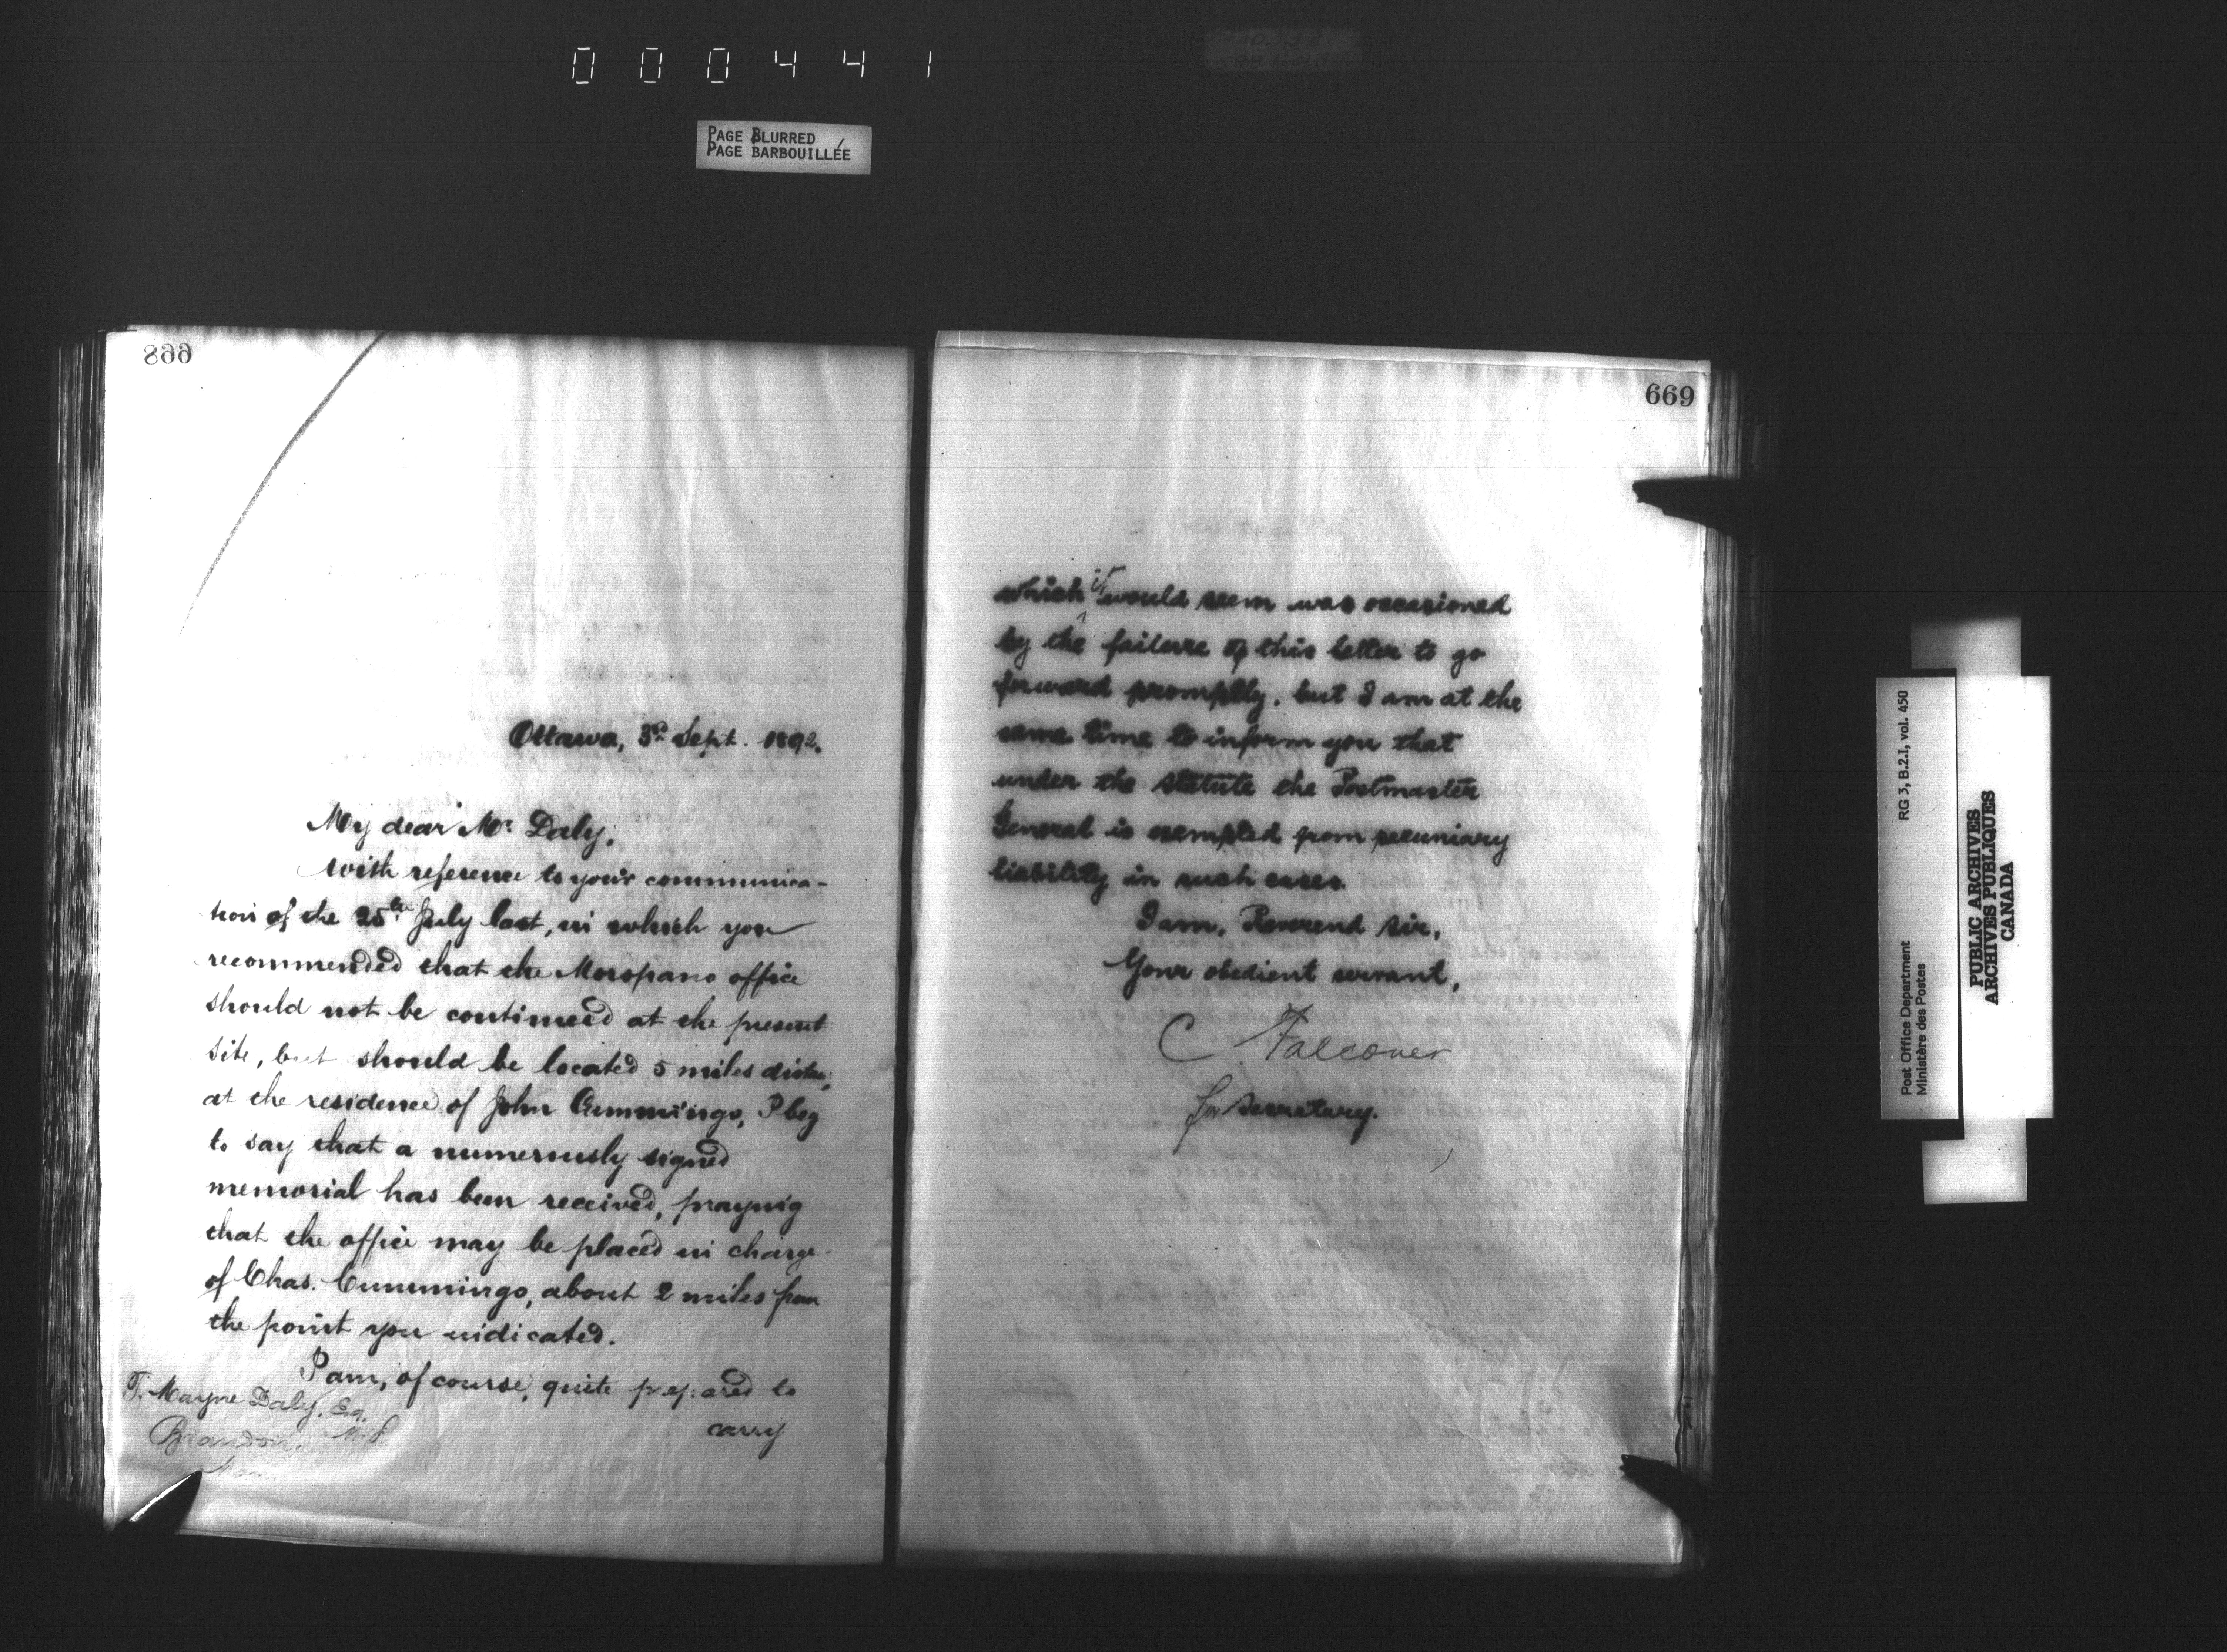 000441
PAGE BLURRED
PAGE BARBOUILLÉE
668
Ottawa, 3rd Sept. 1892.
My dear Mr Daly,
With reference to your communica-
tion of the 25th July last, in which you
recommended that the Moropano office
should not be continued at the present
site, but should be located 5 miles distant,
at the residence of John Cummings, I beg
to say that a numerously signed
memorial has been received, praying
that the office may be placed in charge
of Chas. Cummings, about 2 miles from
the point you indicated.
I am, of course, quite prepared to
carry
T. Mayne Daly, Esq.
M.P.
Brandon,
Man
669
which it would seem was occasioned
by the failure of this letter to go
forward promptly, but I am at the
same time to inform you that
under the statute the Postmaster
General is exempted from pecuniary
liability in such cases.
I am, Reverend Sir,
Your obedient servant,
C. Falconer
for Secretary.
RG 3, B.2.1, vol. 450
Post Office Department
Ministère des Postes
PUBLIC ARCHIVES
ARCHIVES PUBLIQUES
CANADA